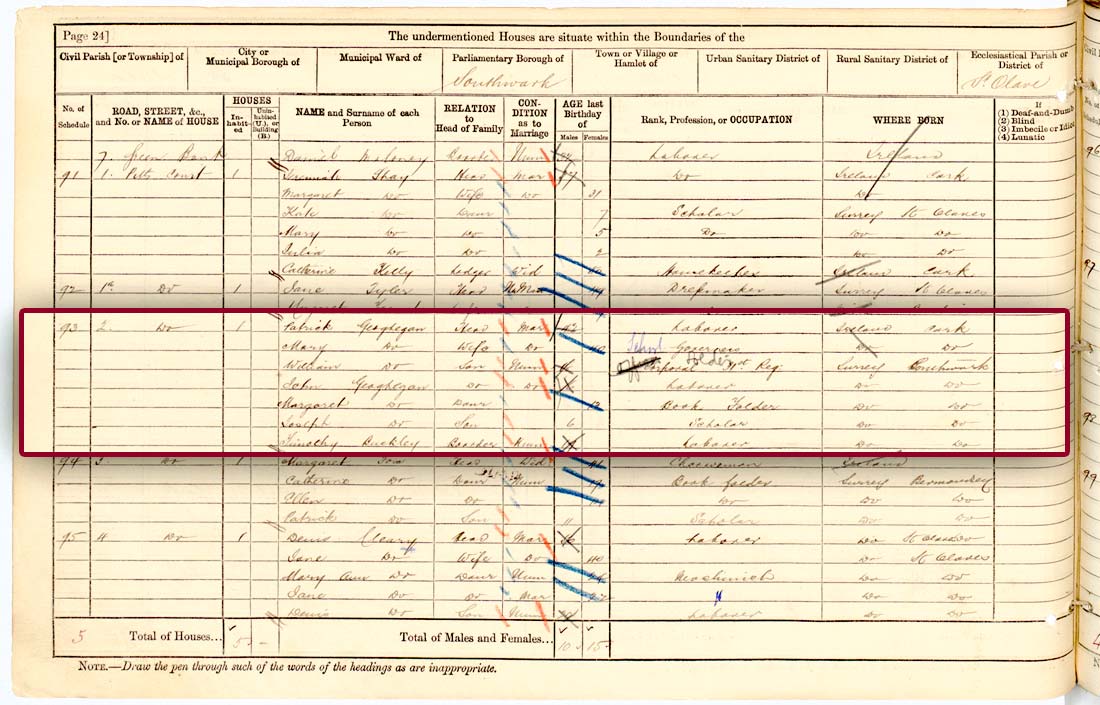 Page 24] The undermentioned Houses are situate within the Boundaries of the
Civil Parish [or Township] of City or Municipal Borough of Municipal Ward of Parliamentary Borough of Town or Village or Hamlet of Urban Sanitary District of Rural Sanitary District of Ecclesiastical Parish or District of
Southwark St Olave
No. of Schedule ROAD, STREET, &c., and No. or NAME of HOUSE HOUSES In-habit-ed Unin-habited (U.), or Building (B.) NAME and Surname of each Person RELATION to Head of Family CON-DITION as to Marriage AGE last Birthday of Males Females Rank, Profession, or OCCUPATION WHERE BORN If (1) Deaf-and-Dumb (2) Blind (3) Imbecile or Idiot (4) Lunatic
7. Green Bank Daniel Maloney Unm Labourer Ireland
91 1. Potts Court 1 Jeremiah Shay Head Mar Do Ireland Cork
Margaret Do Wife Do 31 Do
Kate Do Daur 7 Scholar Surrey St Olaves
Mary Do Do 5 Do Do Do
Julia Do Do 2 Do Do
Catherine Kelly Lodger Wid Ireland Cork
92 1a Do 1 Jane Tyler Head Surrey St Olaves
93 2. Do 1 Patrick Geoghegan Head Mar 42 Labourer Ireland Cork
Mary Do Wife Do 40 Do Do
William Do Son Unm Corporal Reg Surrey Southwark
John Geoghegan Do Do Labourer Do Do
Margaret Do Daur Book Folder Do Do
Joseph Do Son 6 Scholar Do Do
Timothy Buckley Boarder Unm Labourer Do Do
94 3. Do 1 Margaret Head Wid Charwoman Ireland
Catherine Do Daur Unm 19 Book folder Surrey Bermondsey
Ellen Do Do Do Do Do
Patrick Do Son 11 Scholar Do Do
95 4. Do 1 Denis Cleary Head Mar Labourer Do St Olaves
Jane Do Wife Do 40 Do St Olaves
Mary Ann Do Daur Unm Do Do
Jane Do Do Mar Do Do
Denis Do Son Unm Labourer Do Do
5 Total of Houses... 5 Total of Males and Females... 10 15
NOTE.—Draw the pen through such of the words of the headings as are inappropriate.